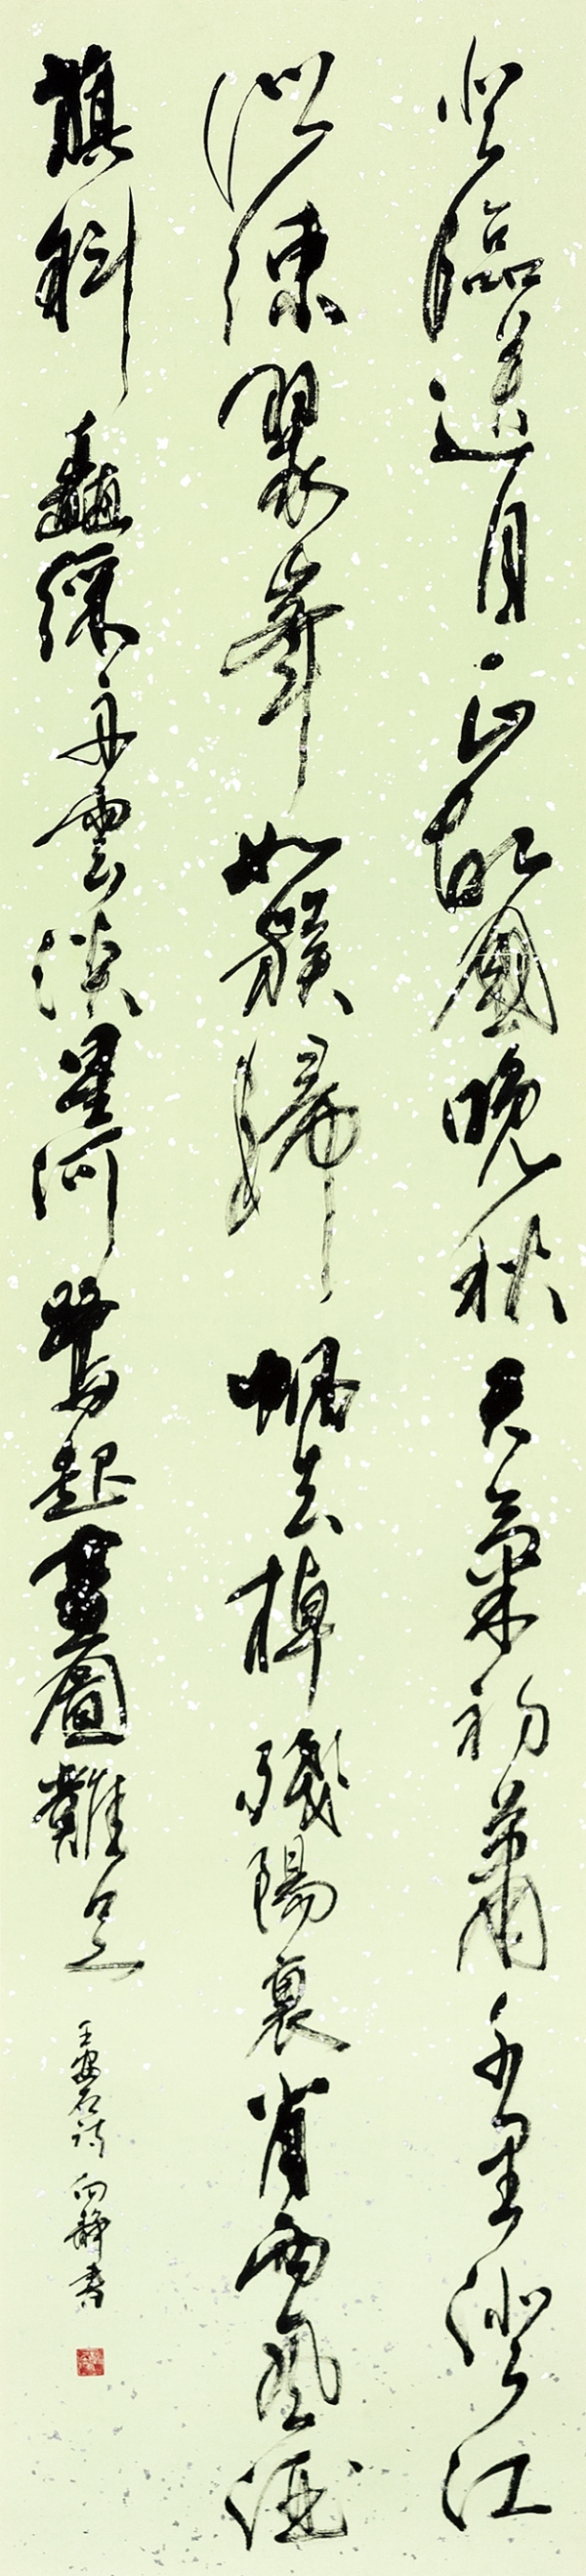 登臨送目正故國晚秋天氣初肅千里澄江
似練翠峯如簇歸帆去棹殘陽裏背西風酒
旗斜矗綵舟雲淡星河鷺起畫圖難足
王安石詩 向靜書